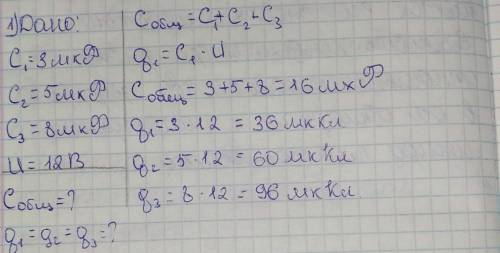 1) Дано:
C₁=3мкФ
C₂=5мкФ
C₃=8мкФ
U=12В
Cобщ=?
q₁=q₂=q₃=?
Cобщ=C₁+C₂-C₃
q₁=C₁·U
Cобщ=3+5+8=16мкФ
q₁=3·12=36мкКл
q₂=5·12=60мкКл
q₃=8·12=96мкКл